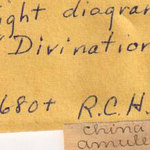 ight diagram
Divination
680+ R.C.H.
china
amule